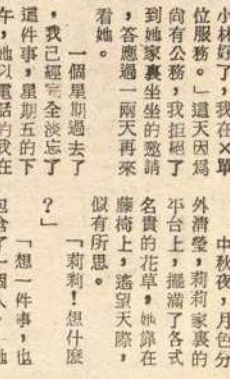 小林好了，我在×單
位服務。」這天因爲
尚有公務，我拒絕了
到她家裏坐坐的邀請
，答應過一兩天再來
看她。
一個星期過去了
，我已經完全淡忘了
這件事，星期五的下
午，她以電話約我在
中秋夜，月色分
外清瑩，莉莉家裏的
平台上，擺滿了各式
名貴的花草，她靠在
藤椅上，遙望天際，
似有所思。
「莉莉！想什麽
？」
「想一件事，也
包含了一個人。」她